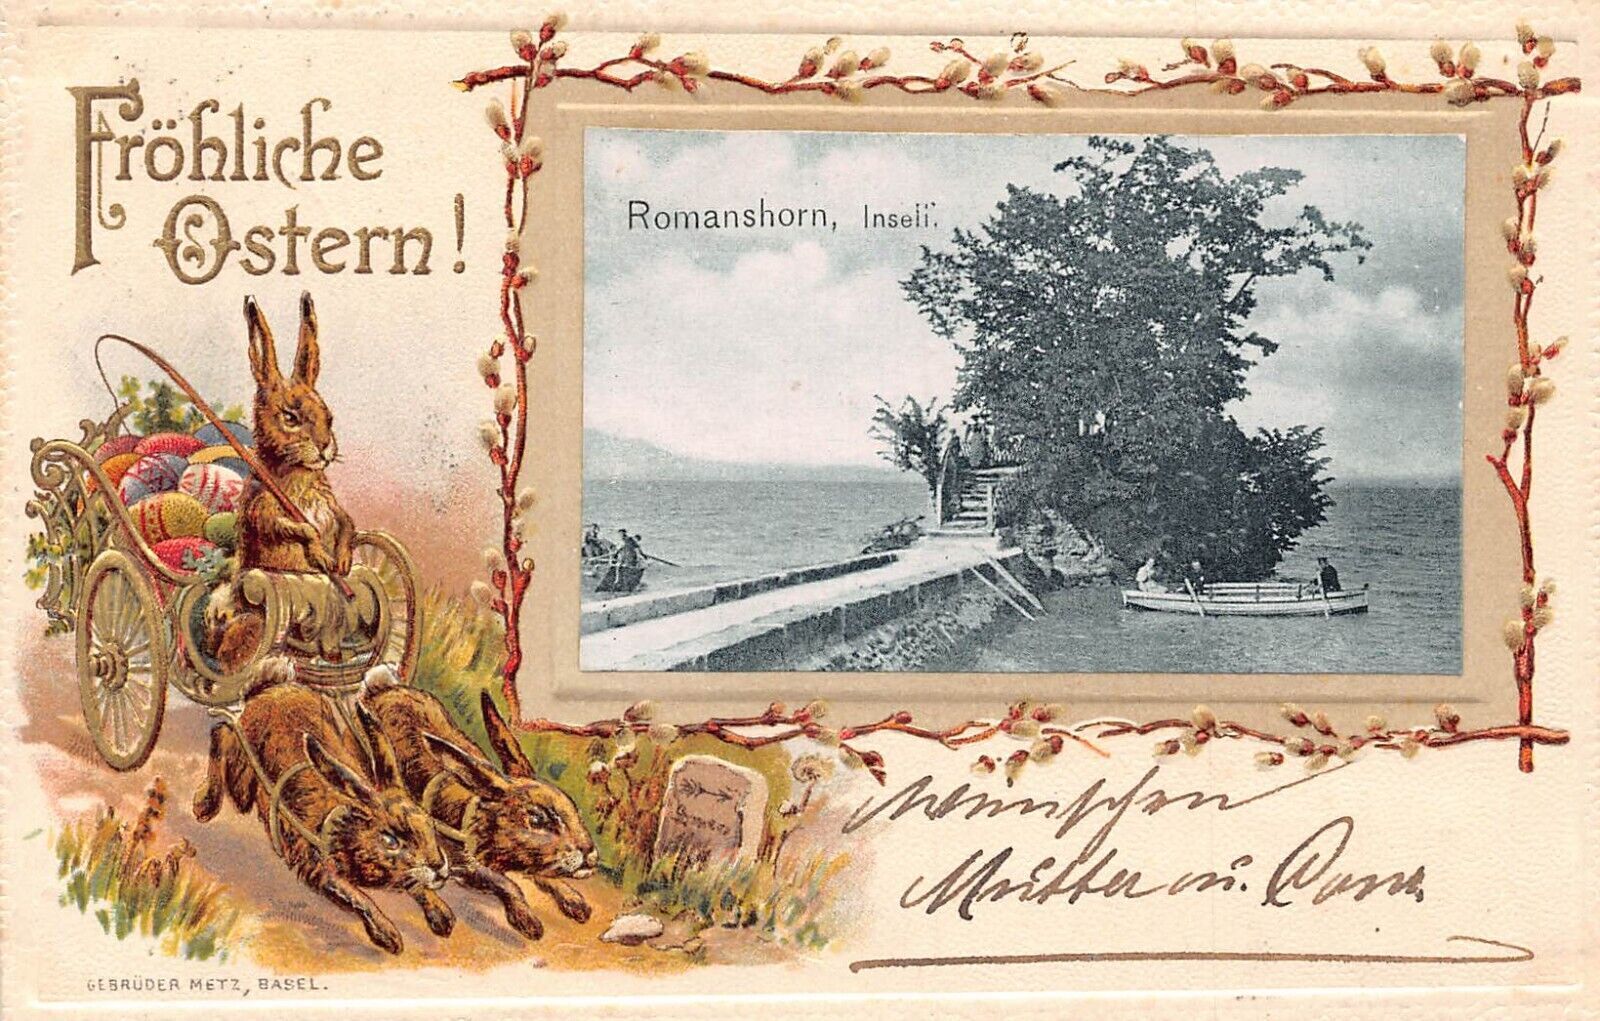 Fröhliche
Ostern!
Romanshorn, Inseli.
Wünschen
Mutter u.
GEBRÜDER METZ, BASEL.